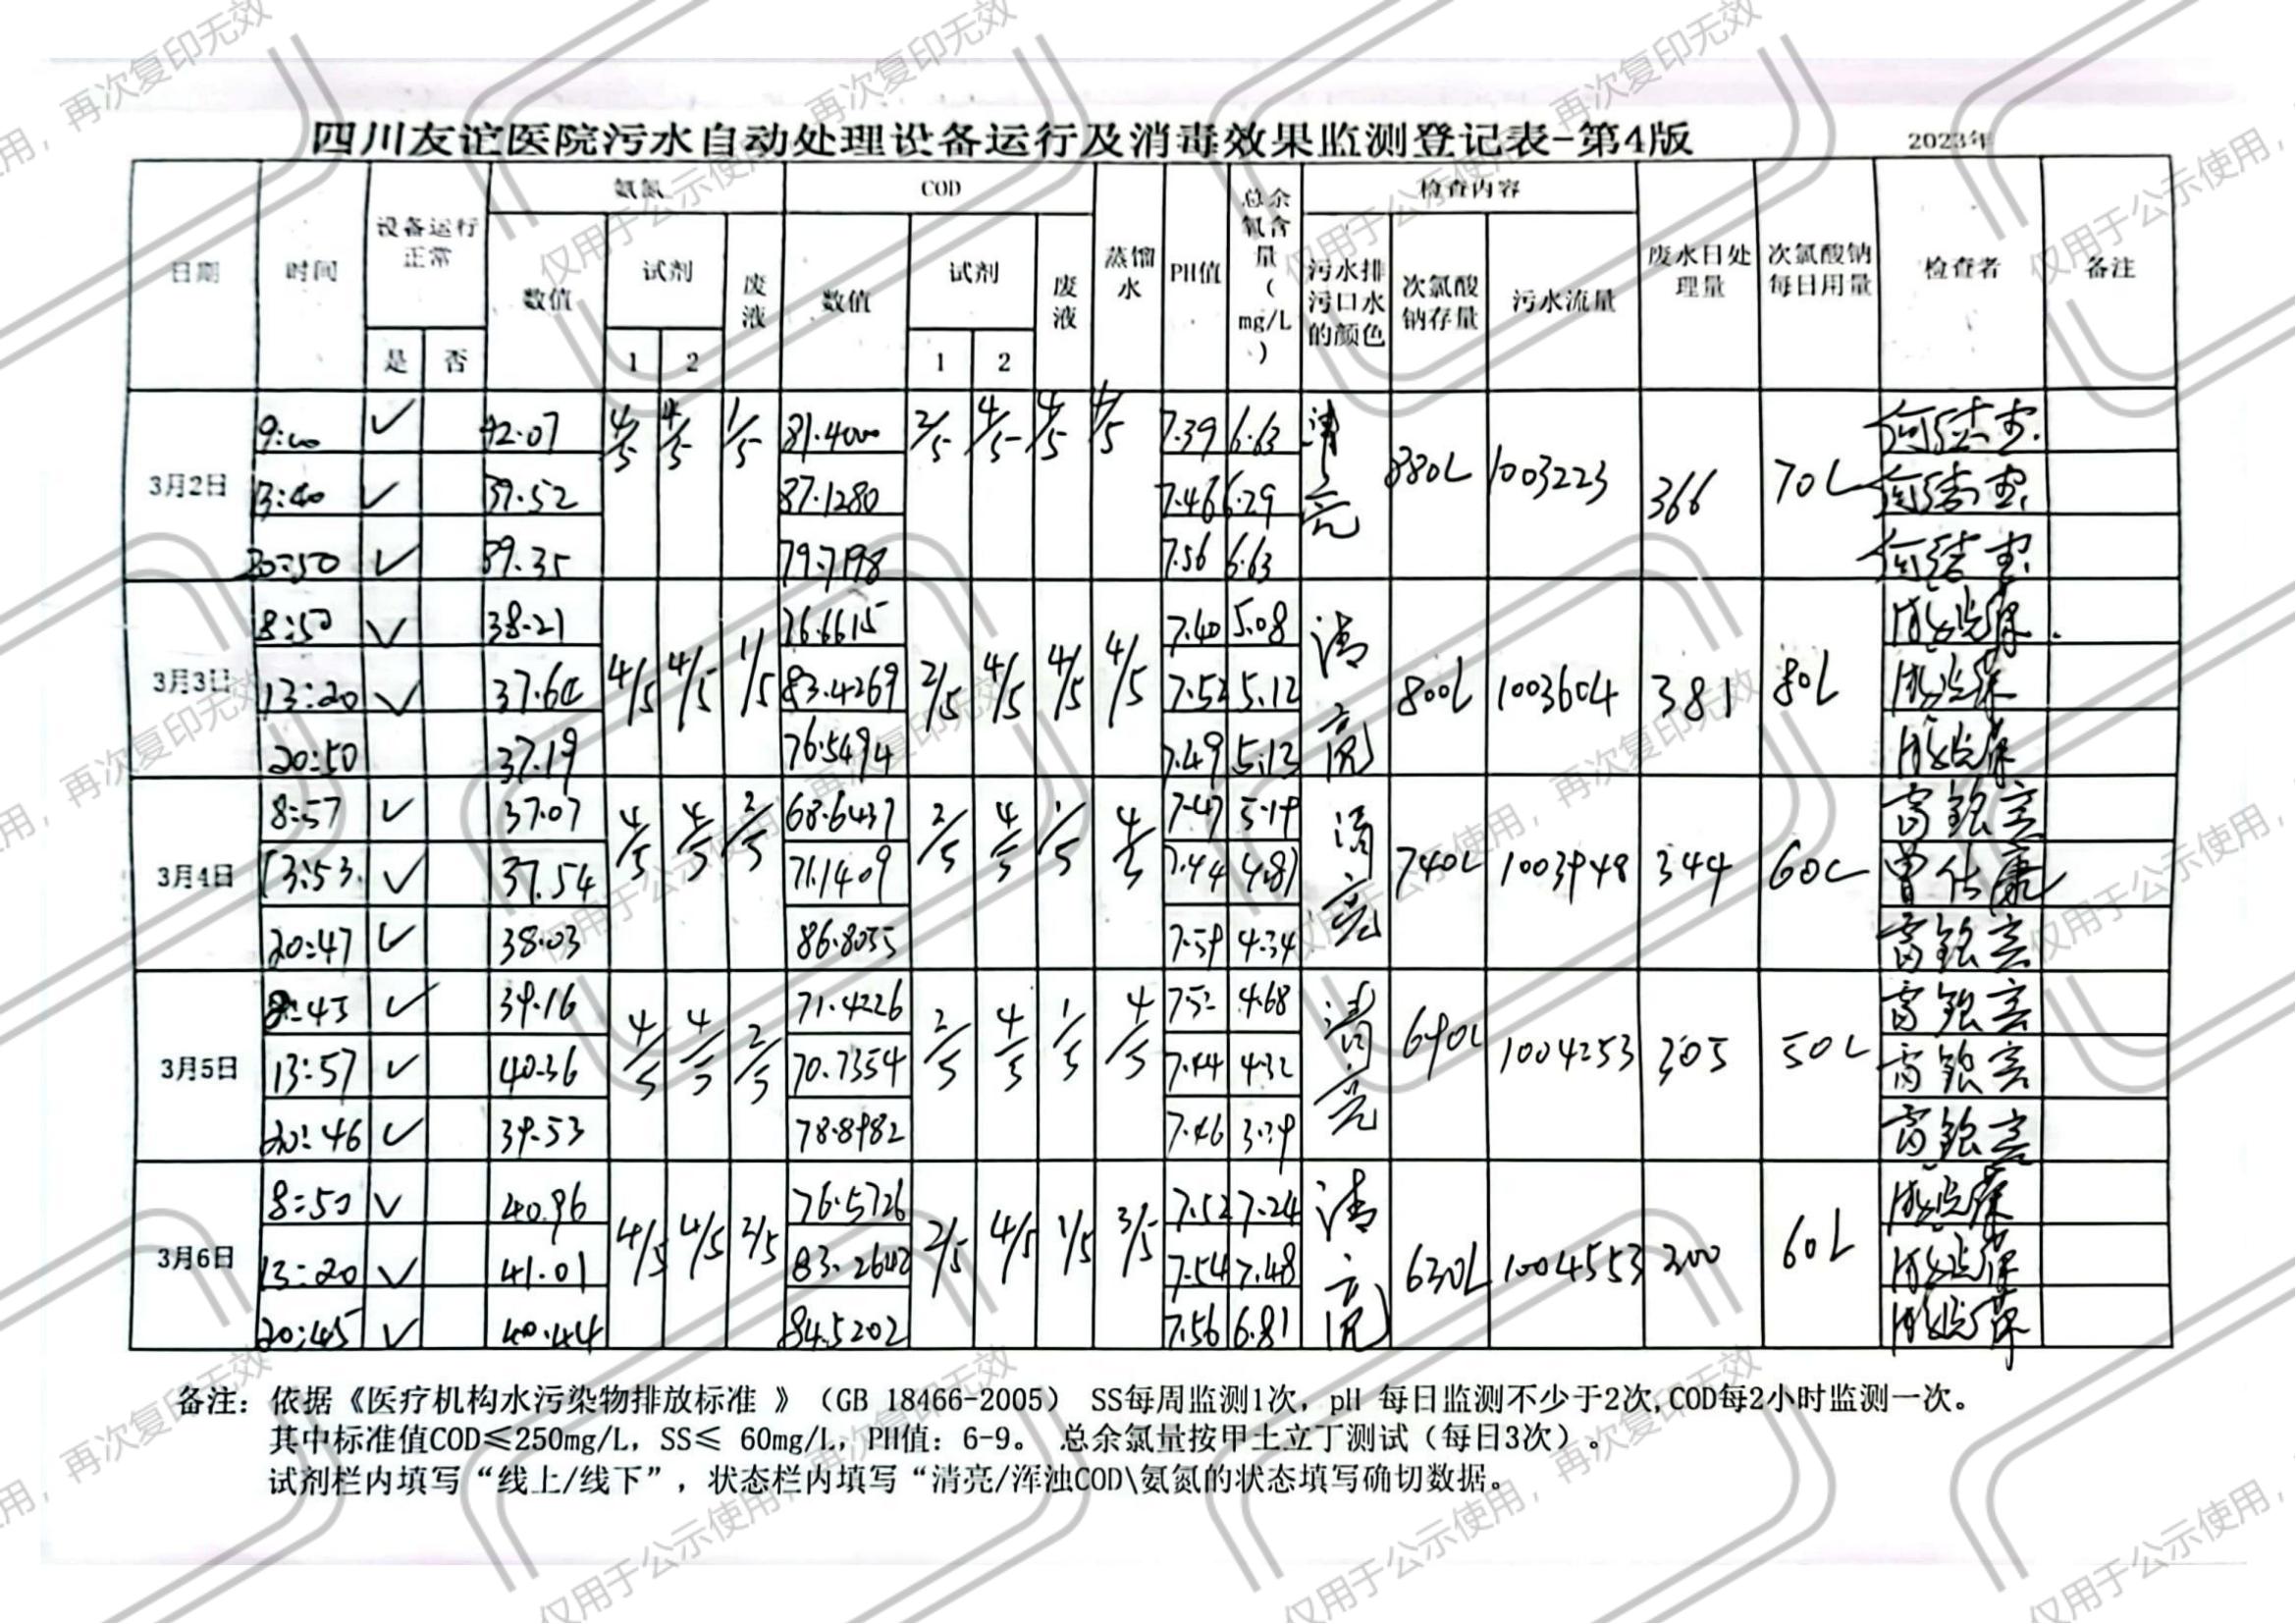 四川友谊医院污水自动处理设备运行及消毒效果监测登记表-第4版 2023年
日期 时间 设备运行正常 氨氮 COD 蒸馏水 PH值 总余氧含量(mg/L) 检查内容 废水日处理量 次氯酸钠每日用量 检查者 备注
是 否 数值 试剂 废液 数值 试剂 废液 污水排污口水的颜色 次氯酸钠存量 污水流量
1 2 1 2
3月2日
9:00 ✓ 42.07 4/5 4/5 1/5 81.4000 2/5 4/5 4/5 4/5 7.39 6.63 清亮 880L 1003223 366 70L
13:40 ✓ 39.52 87.1280 7.46 6.29
20:50 ✓ 39.35 79.7198 7.56 6.63
3月3日
8:50 ✓ 38.21 76.6615 7.40 5.08
13:20 ✓ 37.60 4/5 4/5 1/5 83.4269 2/5 4/5 4/5 4/5 7.52 5.12 清亮 800L 1003604 381 80L
20:50 37.19 76.5494 7.49 5.13
3月4日
8:57 ✓ 37.07 4/5 4/5 2/5 68.6437 2/5 4/5 1/5 4/5 7.47 5.19 雷银亮
13:53 ✓ 37.54 71.1409 7.44 4.87 清亮 740L 1003948 344 60L 曾仕康
20:47 ✓ 38.03 86.8055 7.59 4.34 雷银亮
3月5日
8:45 ✓ 39.16 4/5 4/5 2/5 71.4226 2/5 4/5 1/5 4/5 7.52 4.68 雷银亮
13:57 ✓ 40.36 70.7354 7.44 4.32 清亮 690L 1004253 305 50L 雷银亮
20:46 ✓ 39.53 78.8982 7.46 3.39 雷银亮
3月6日
8:50 ✓ 40.96 76.5726 7.52 7.24
13:20 ✓ 41.01 4/5 4/5 2/5 83.2602 2/5 4/5 1/5 3/5 7.54 7.48 清亮 630L 1004553 300 60L
20:45 ✓ 40.44 84.5202 7.56 6.81
备注：依据《医疗机构水污染物排放标准 》（GB 18466-2005） SS每周监测1次，pH 每日监测不少于2次,COD每2小时监测一次。
其中标准值COD≤250mg/L，SS≤ 60mg/L，PH值：6-9。 总余氯量按甲土立丁测试（每日3次）。
试剂栏内填写“线上/线下”，状态栏内填写“清亮/浑浊COD\氨氮的状态填写确切数据。
仅用于公示使用，再次复印无效